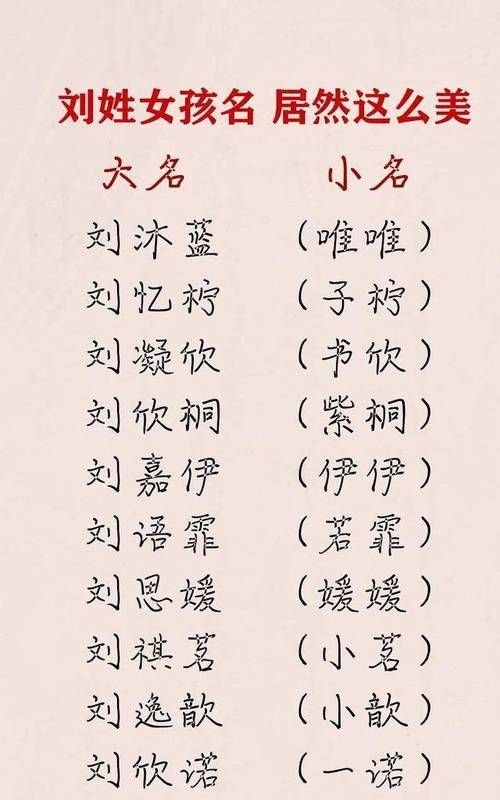 刘姓女孩名 居然这么美
大名 小名
刘沐蓝 (唯唯)
刘忆柠 (子柠)
刘凝欣 (书欣)
刘欣桐 (紫桐)
刘嘉伊 (伊伊)
刘语霏 (若霏)
刘思媛 (媛媛)
刘祺茗 (小茗)
刘逸歆 (小歆)
刘欣诺 (一诺)